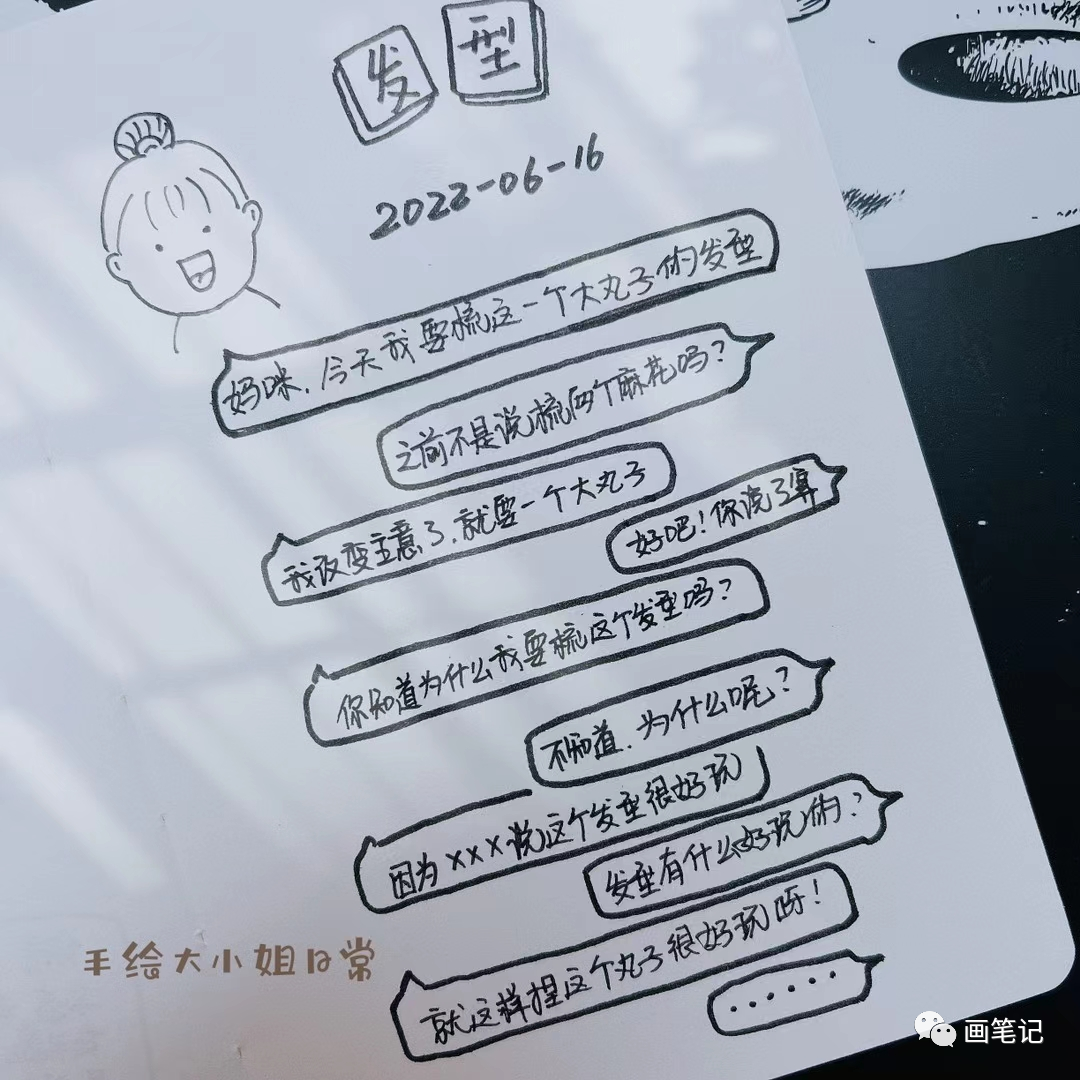 发型
2022-06-16
妈咪，今天我要梳这一个大丸子的发型
之前不是说梳两个麻花吗？
我改变主意了，就要一个大丸子
好吧！你说了算
你知道为什么我要梳这个发型吗？
不知道，为什么呢？
因为×××说这个发型很好玩
发型有什么好玩的？
就这样捏这个丸子很好玩呀！
······
手绘大小姐日常
画笔记